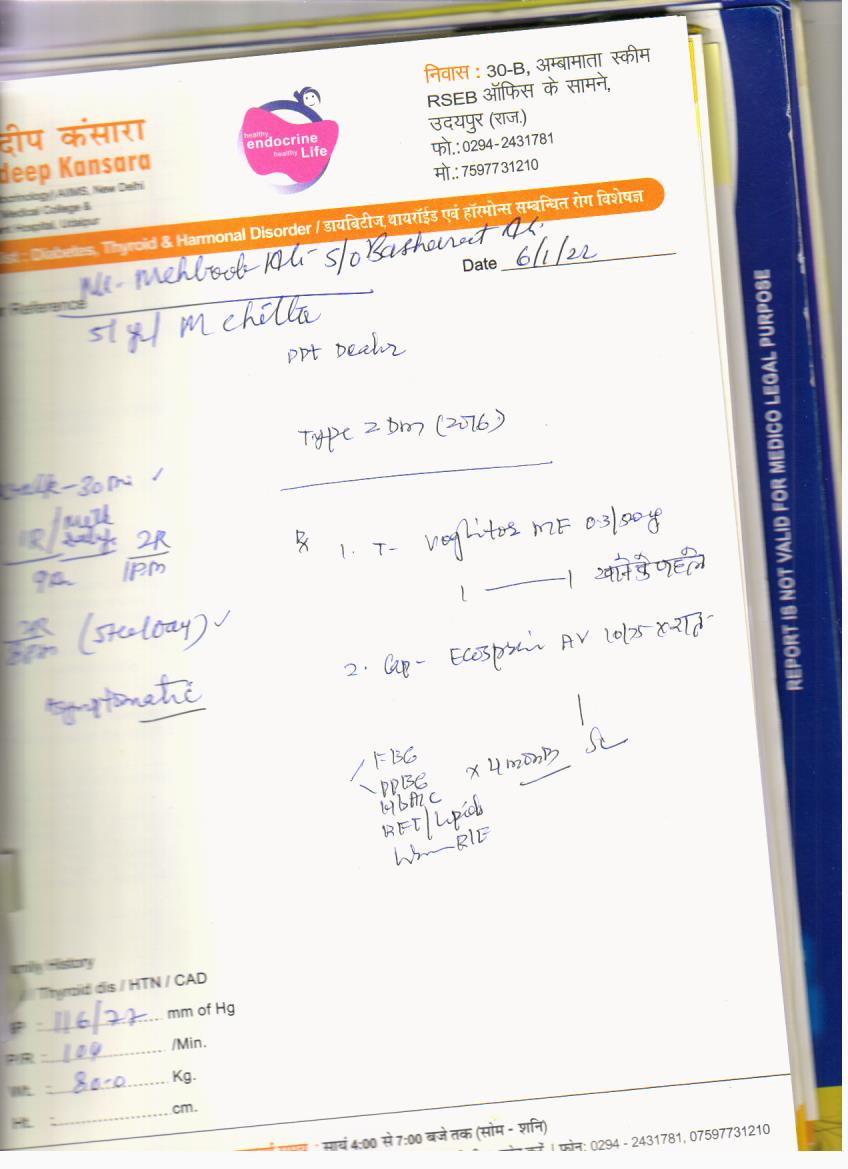 निवास : 30-B, अम्बामाता स्कीम
RSEB ऑफिस के सामने,
उदयपुर (राज.)
फो.:0294-2431781
मो.:7597731210
दीप कंसारा
deep Kansara
AIIMS, New Delhi
Medical College &
Hospital, Udaipur
healthy
endocrine
healthy Life
Diabetes, Thyroid & Harmonal Disorder / डायबिटीज थायरॉईड एवं हॉरमोन्स सम्बन्धित रोग विशेषज्ञ
Mr- Mehboob Ali- S/o Basharat Ali
Date 6/1/22
Reference
51 yr/ M
PPT Dealer
Type 2 Dm (2016)
walk - 30 m
1R/
2R
9am
1PM
1. T- Voglitor MF 0.3/500mg
1 1 खाने से पहले
(Steelbay)
Asymptomatic
2. Cap- Ecosprin AV 10/75 x रात
1
FBG
PPBG x 4 month
HbA1c
RFT/Lipids
R/E
REPORT IS NOT VALID FOR MEDICO LEGAL PURPOSE
Family History
Thyroid dis / HTN / CAD
BP : 116/77 mm of Hg
P/R : 104 /Min.
Wt. : 80.0 Kg.
Ht. : cm.
समय : सायं 4:00 से 7:00 बजे तक (सोम - शनि)
फोन: 0294 - 2431781, 07597731210